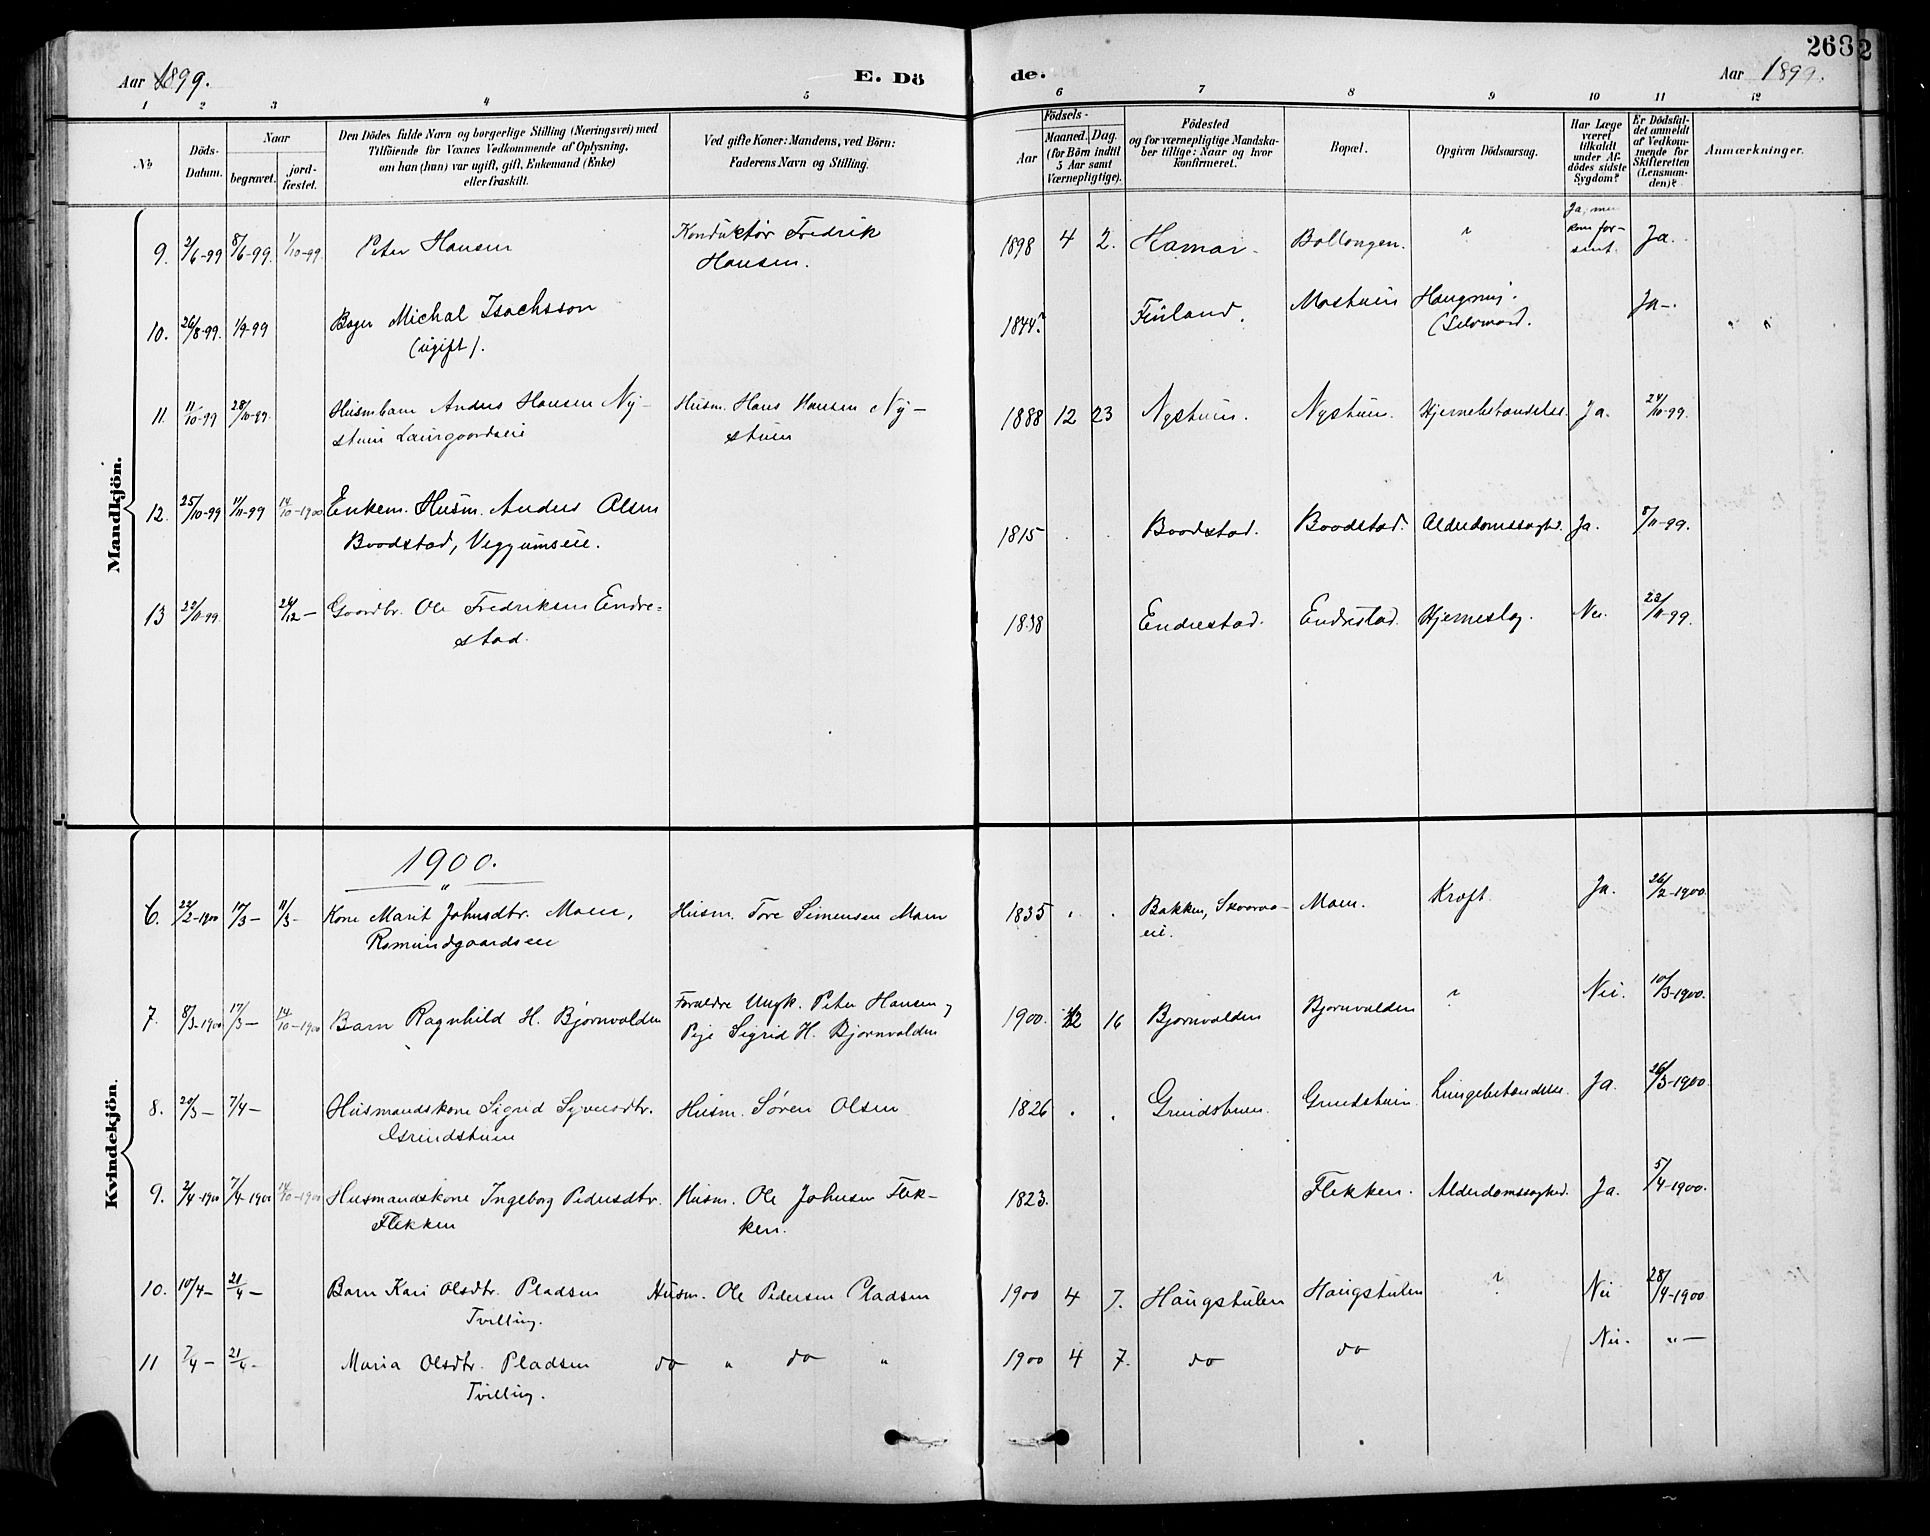 Aar 1899.
E. Dö
de.
Aar 1899.
2682
1 2 3 4 5 6 7 8 9 10 11 12
No
Döds-Datum.
Naar
begravet.
jordfæstet.
Den Dödes fulde Navn og borgerlige Stilling (Næringsvei) med
Tilföiende for Voxnes Vedkommende af Oplysning,
om han (hun) var ugift, gift, Enkemand (Enke)
eller fraskilt.
Ved gifte Koner: Mandens, ved Börn:
Faderens Navn og Stilling.
Födsels-
Aar
Maaned. Dag.
(for Börn indtil
5 Aar samt
Værnepligtige).
Födested
og for værnepligtige Mandska-
ber tillige: Naar og hvor
konfirmeret.
Bopæl.
Opgiven Dödsaarsag.
Har Læge
været
tilkaldt
under Af-
dödes sidste
Sygdom?
Er Dödsfal-
det anmeldt
af Vedkom-
mende for
Skifteretten
(Lensman-
den)?
Anmærkninger.
Mandkjön.
9. 2/6-99 8/6-99. 1/10-99. Peter Hansen Konduktör Fredrik 1898 4 2. Hamar. Ballongen. " Ja, men Ja.
Hansen. kom for-
sent.
10. 26/8-99. 1/9-99 Bager Michal Isachsson 1844? Finland. Mostuen Hængning. Ja. " "
(ugift). (Selvmord.
11. 11/10-99 28/10-99. Husmbarn Anders Hansen Ny- Husm. Hans Hansen Ny- 1888 12 23 Nystuen. Nystuen. Hjernebetændelse. Ja. 24/10-99.
stuen Laurgaardseie stuen
12. 25/10-99 11/11-99 14/10-1900 Enkem. Husm. Anders Olsen 1815 . . Baadstad. Baadstad. Alderdomssvaghed. Ja. 8/11-99.
Baadstad, Veggumseie.
13 22/11-99. 26/12- Gaardbr. Ole Fredriksen Endre- 1838 Endrestad. Endrestad. Hjerneslag. Nei. 23/11-99.
stad.
Kvindekjön.
1900.
6. 22/2-1900 10/3- 11/3- Kone Marit Johnsdtr. Moen, Husm. Tore Simensen Moen 1835 . . Bakken, Moen. Kræft. Ja. 26/2-1900.
Romundgaardseie eie.
7. 8/3-1900 17/3- 14/10-1900 Barn Ragnhild H. Bjørnvolden Forældre Ungk. Peter Hansen, 1900. 2 16 Bjørnvolden Bjørnvolden " Nei. 10/3-1900.
Pige Sigrid H. Bjørnvolden
8. 20/3- 7/4- Husmandskone Sigrid Syversdtr. Husm. Søren Olsen 1826 . . Grindstuen. Grindstuen. Lungebetændelse. Ja. 26/3-1900.
Grindstuen
9. 2/4-1900 7/4-1900 14/10-1900 Husmandskone Ingeborg Pedersdtr. Husm. Ole Johnsen Flek- 1823. Flekken. Alderdomssvaghed. Ja. 5/4-1900.
Flekken ken.
10. 10/4- 21/4- Barn Kari Olsdtr. Pladsen Husm. Ole Pedersen Pladsen 1900 4 7. Haugstulen Haugstulen ? Nei 28/4-1900
Tvilling.
11 7/4- 21/4- Maria Olsdtr. Pladsen do " do " 1900 4 7. do do Nei. "-
Tvilling.